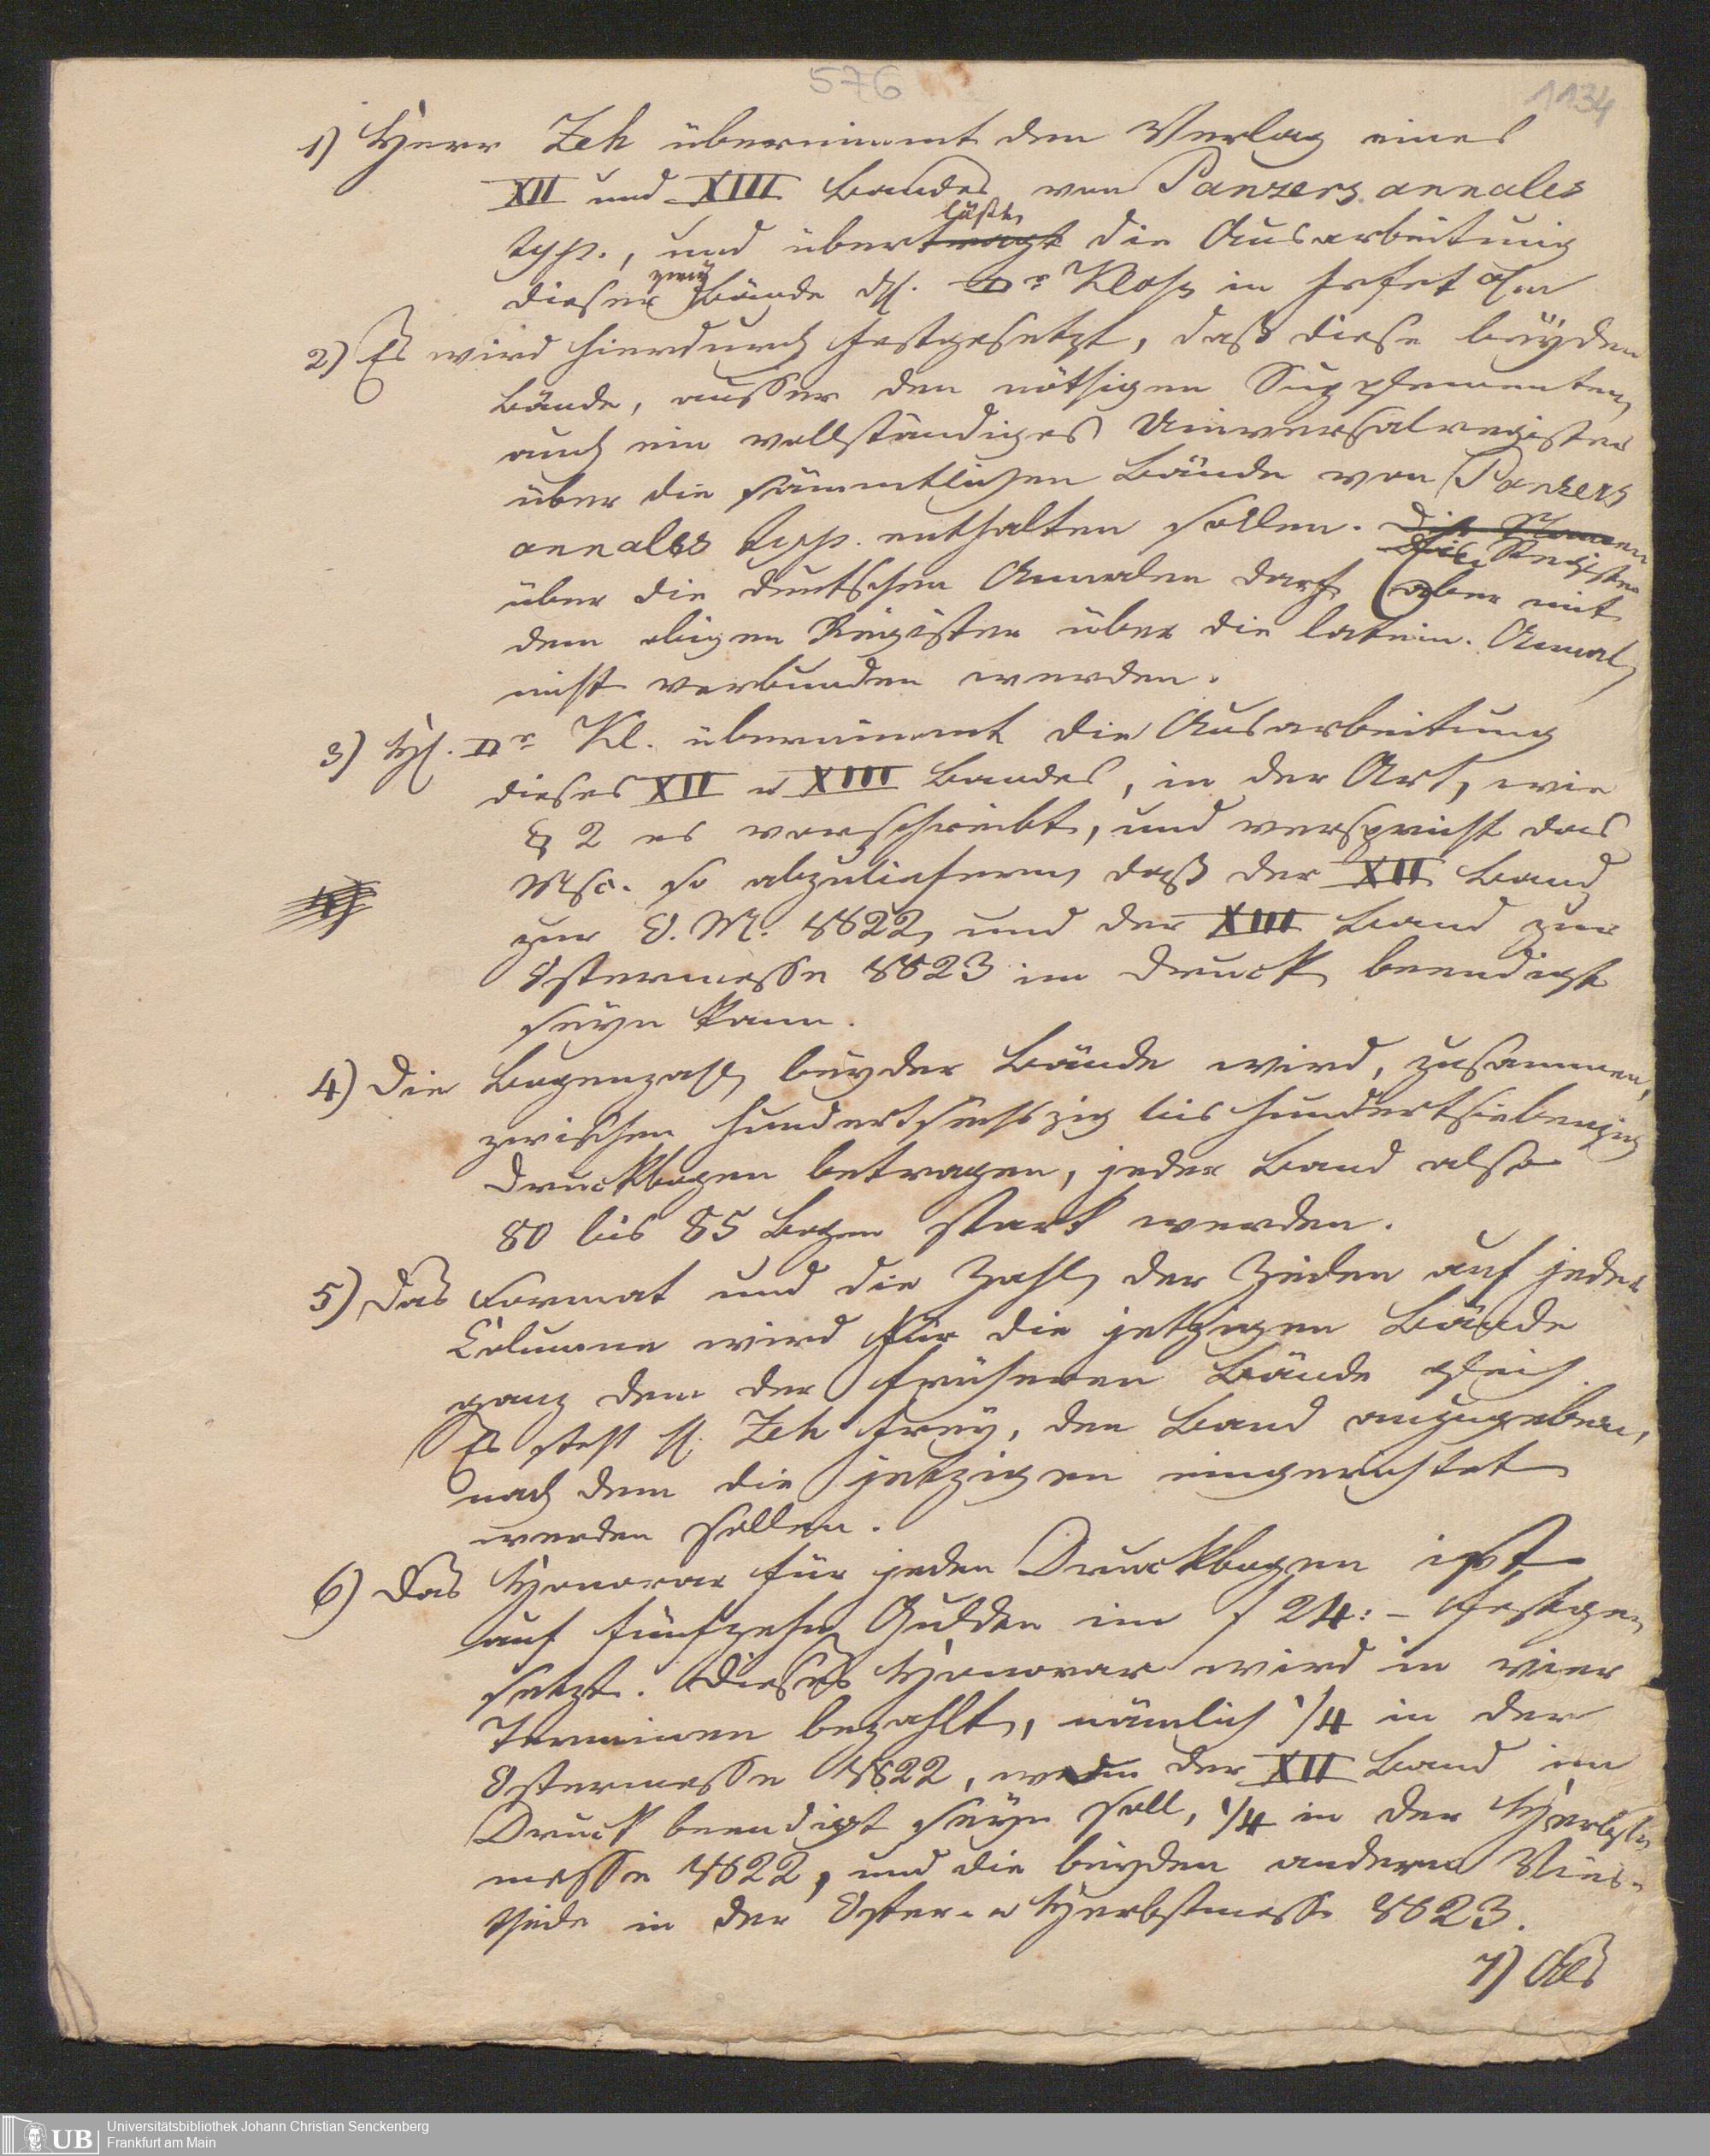 576
1134
1) Herr Zeh übernimmt den Verlag eines
XII und XIII Bandes von Panzers annales
typp., und überträgt läßt die Ausarbeitung
dieser zwey Bände Hr. Dr Kloß in Frkft a/m
2) Es wird hierdurch festgesetzt, daß diese beyden
Bände, ausser den nöthigen Supplementen,
auch ein vollständiges Universalregister
über die sämmtlichen Bände von Panzers
annales typp. enthalten sollen. Die
Die Register
über die deutschen Annalen darf aber mit
dem obigen Register über die latein. Annal.
nicht verbunden werden.
3) Hr. Dr Kl. übernimmt die Ausarbeitung
dieses XII u XIII Bandes, in der Art, wie
§ 2 es vorschreibt, und verspricht das
Msc. so abzuliefern, daß der XII Band
zur O. M. 1822, und der XIII Band zur
Ostermesse 1823 im Druck beendigt
seyn kann.
4) Die Bogenzahl beyder Bände wird, zusammen,
zwischen hundertsechszig bis hundertsiebenzig
Druckbogen betragen, jeder Band also
80 bis 85 Bogen stark werden.
5) Das Format und die Zahl der Zeilen auf jeder
Columne wird für die jetzigen Bände
ganz dem der früheren Bände gleich.
Es steht H. Zeh frey, den Band anzugeben,
nach dem die jetzigen eingerichtet
werden sollen.
6) Das Honorar für jeden Druckbogen ist
auf fünfzehn Gulden im f 24:- festge-
setzt. Dieses Honorar wird in vier
Terminen bezahlt, nämlich 1/4 in der
Ostermesse 1822, wenn der XII Band im
Druck beendigt seyn soll, 1/4 in der Herbst-
messe 1822, und die beyden andern Vier-
theile in der Oster- u Herbstmesse 1823.
7) Als
UB
Universitätsbibliothek Johann Christian Senckenberg
Frankfurt am Main